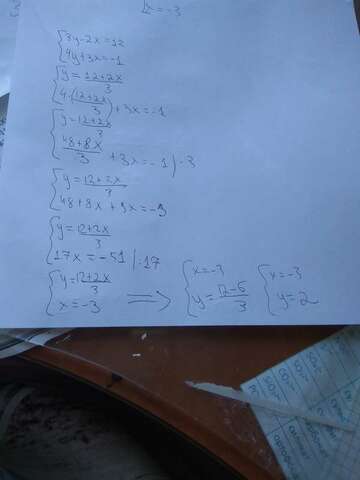 x=-3
{3y-2x=12
{4y+3x=-1
{y=(12+2x)/3
{4·(12+2x)/3+3x=-1
{y=(12+2x)/3
{(48+8x)/3+3x=-1|·3
{y=(12+2x)/3
{48+8x+9x=-3
{y=(12+2x)/3
{17x=-51|:17
{y=(12+2x)/3
{x=-3
⇒
{x=-3
{y=(12-6)/3
{x=-3
{y=2